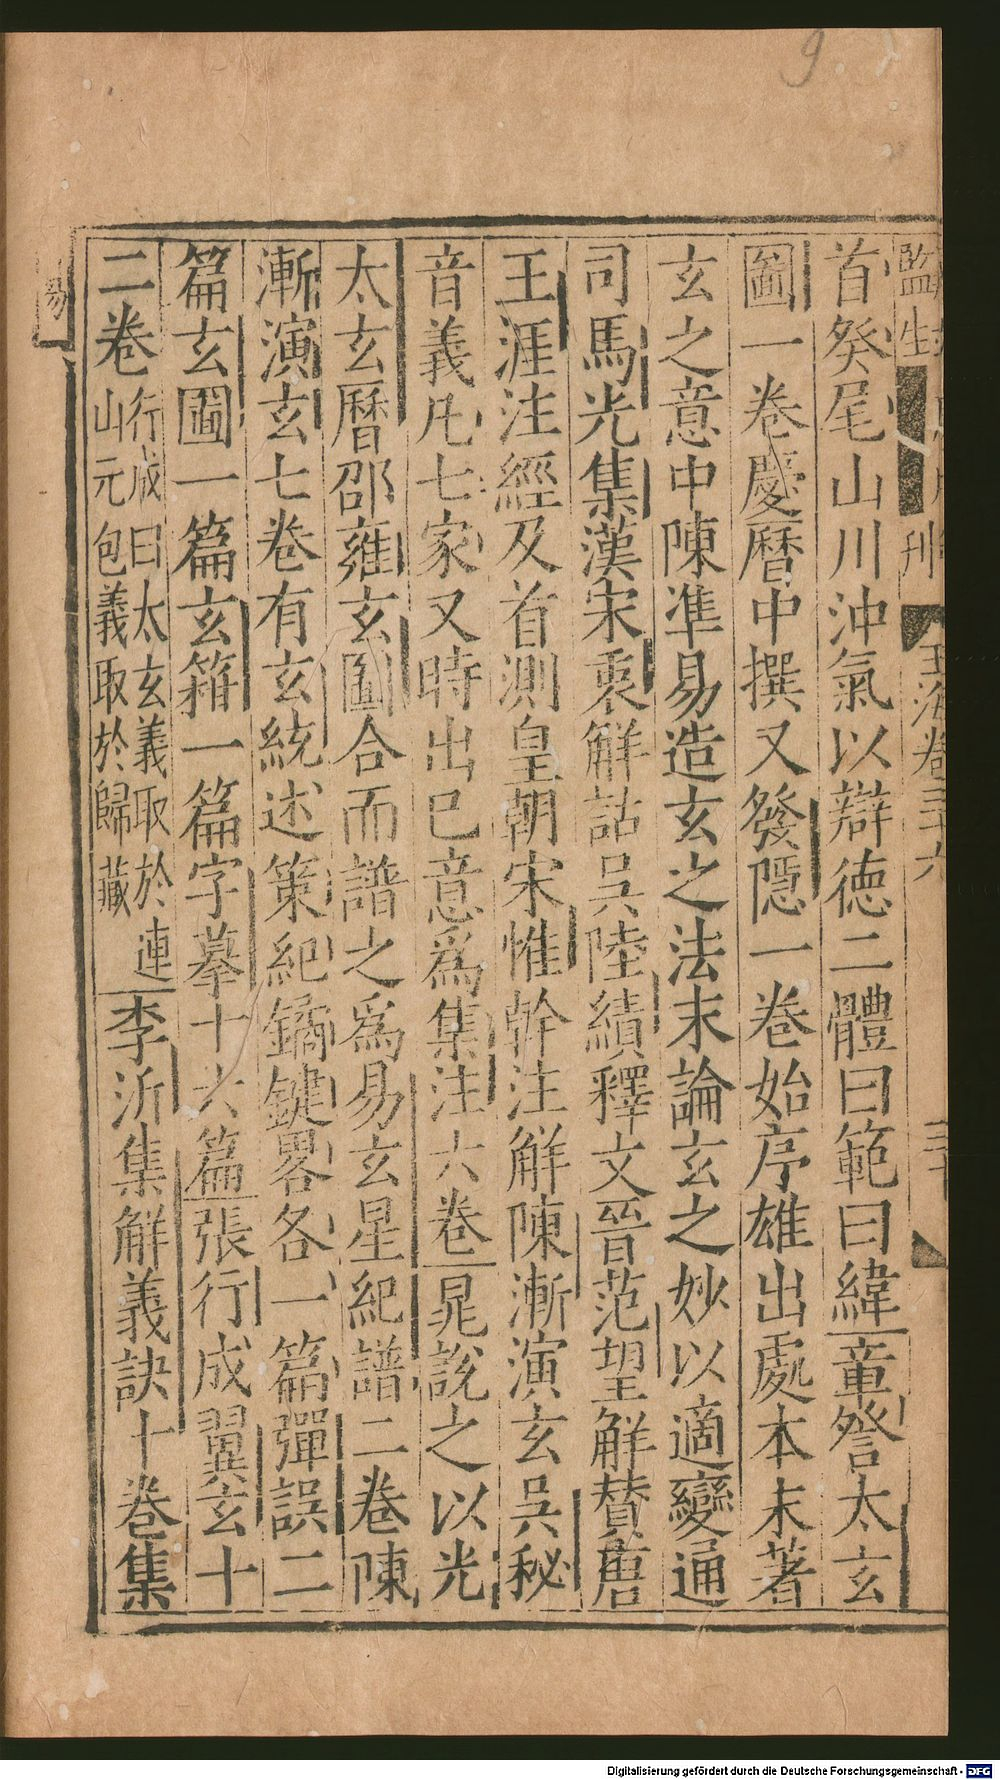 9
監生 刊 玉海卷三十六 三十
首癸尾山川沖氣以辯德二體曰範曰緯章詧太玄
圖一卷慶曆中撰又發隱一卷始序雄出處本末著
玄之意中陳準易造玄之法末論玄之妙以適變通
司馬光集漢宋衷解詁吳陸績釋文晉范望解贊唐
王涯注經及首測皇朝宋惟幹注解陳漸演玄吳秘
音義凡七家又時出已意爲集注六卷晁說之以光
太玄曆邵雍玄圖合而譜之爲易玄星紀譜二卷陳
漸演玄七卷有玄統述策紀鐍鍵畧各一篇彈誤二
篇玄圖一篇玄籍一篇字摹十六篇張行成翼玄十
二卷行成曰太玄義取於連
山元包義取於歸藏李沂集解義訣十卷集
易
Digitalisierung gefördert durch die Deutsche Forschungsgemeinschaft - DFG